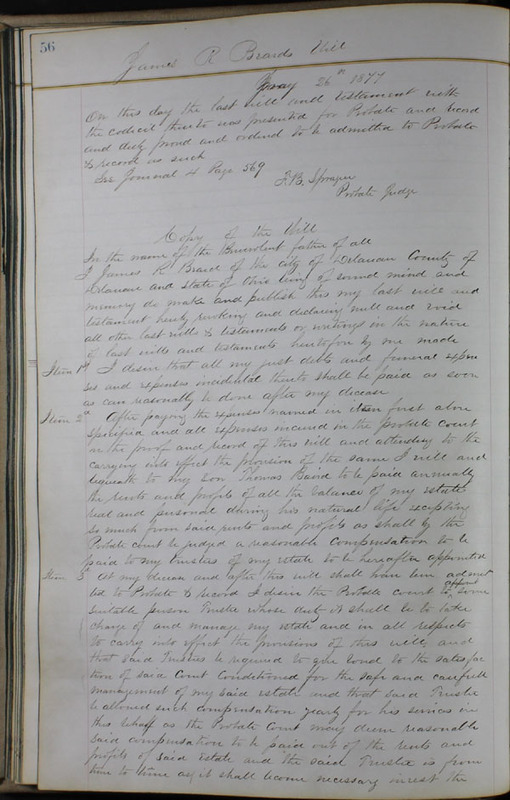 56
James R Beards Will
May 26th 1877
On this day the last will and testament with
the codicil thereto was presented for Probate and record
and duly proved and ordered to be admitted to Probate
& record as such
See Journal 4 Page 569
F. B. Sprague
Probate Judge
Copy of the Will
In the name of the Benevolent father of all
I James R. Beard of the city of Delaware County of
Delaware and State of Ohio being of sound mind and
memory do make and publish this my last will and
testament hereby revoking and declaring null and void
all other last wills & testaments or writings in the nature
of last wills and testaments heretofore by me made
Item 1st I desire that all my just debts and funeral expen
ses and expenses incidental thereto shall be paid as soon
as can reasonably be done after my decease
Item 2d After paying the expenses named in item first above
specified and all expenses incured in the probate court
in the proof and record of this will and attending to the
carrying into effect the provision of the same I will and
bequeath to my son Thomas Baird to be paid annually
the rents and profits of all the balance of my estate
real and personal during his natural life excepting
so much from said rents and profits as shall by the
Probate court be judged a reasonable compensation to be
paid to my trustees of my estate to be hereafter appointed
Item 3 At my decease and after this will shall have been admit
ted to Probate & record I desire the Probate court to appoint some
suitable person Trustee whose duty it shall be to take
charge of and manage my estate and in all respects
to carry into effect the provisions of this will, and
that said Trustees be required to give bond to the satisfac
tion of said Court Conditioned for the safe and carefull
management of my said estate and that said Trustee
be allowed such compensation yearly for his services in
this behalf as the Probate Court may deem reasonable
said compensation to be paid out of the rents and
profits of said estate and the said Trustee is from
time to time as it shall become necessary invest the